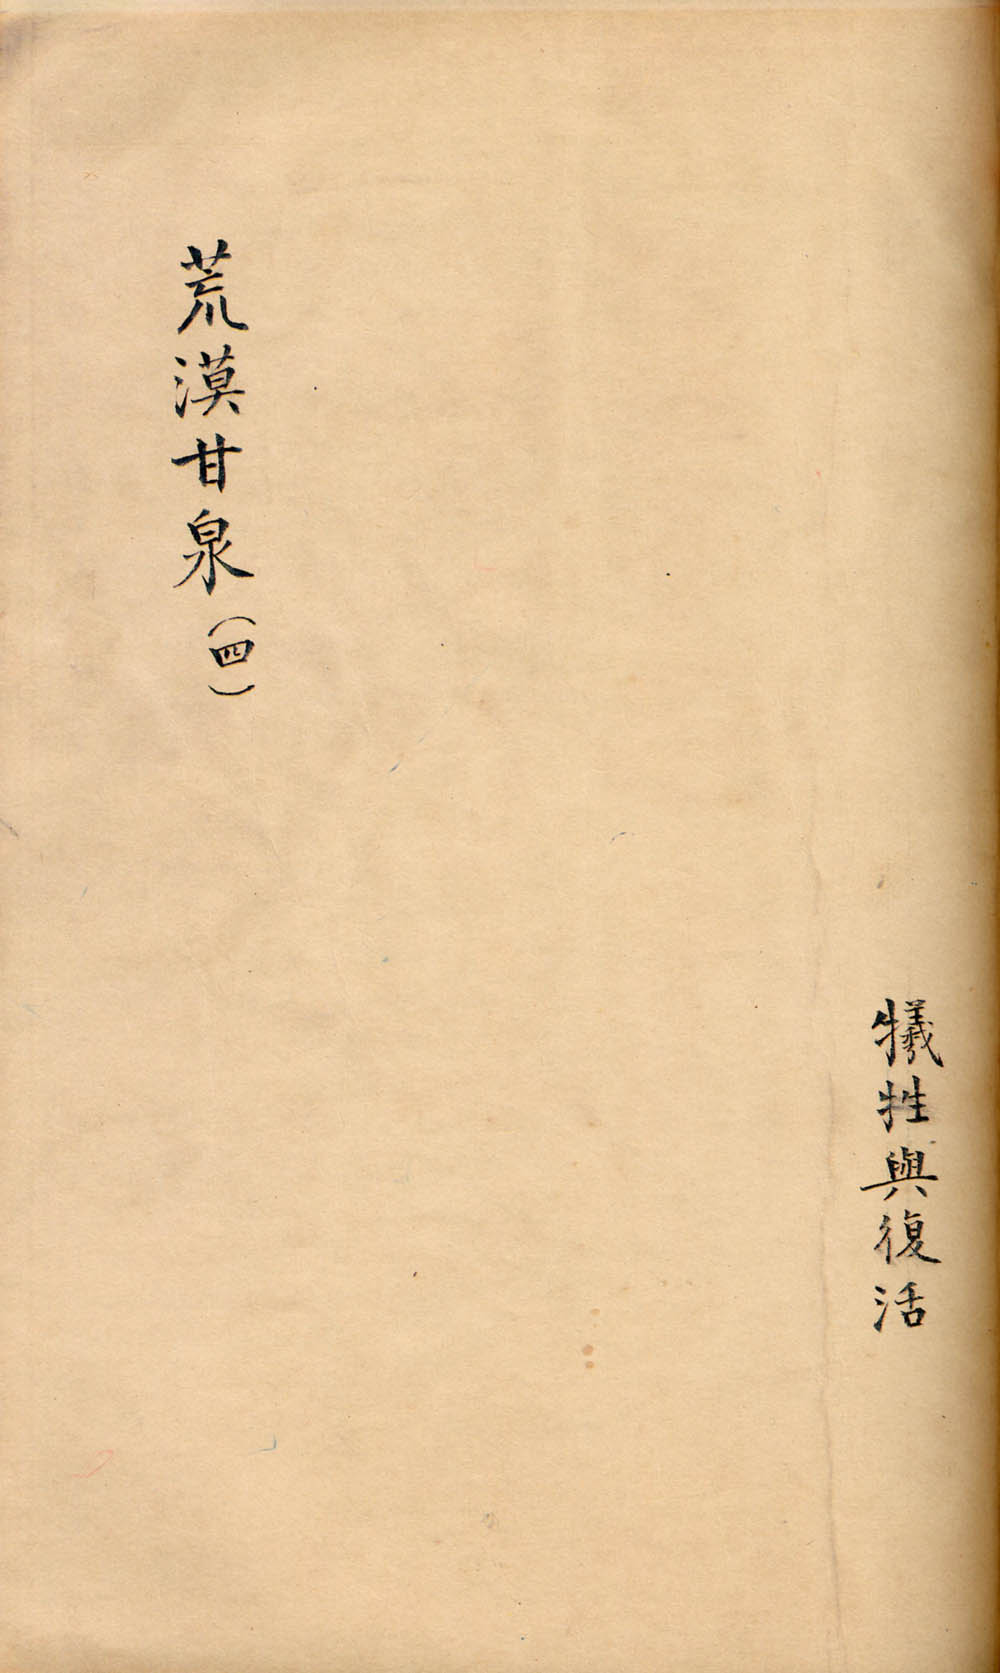 犧牲與復活
荒漠甘泉（四）